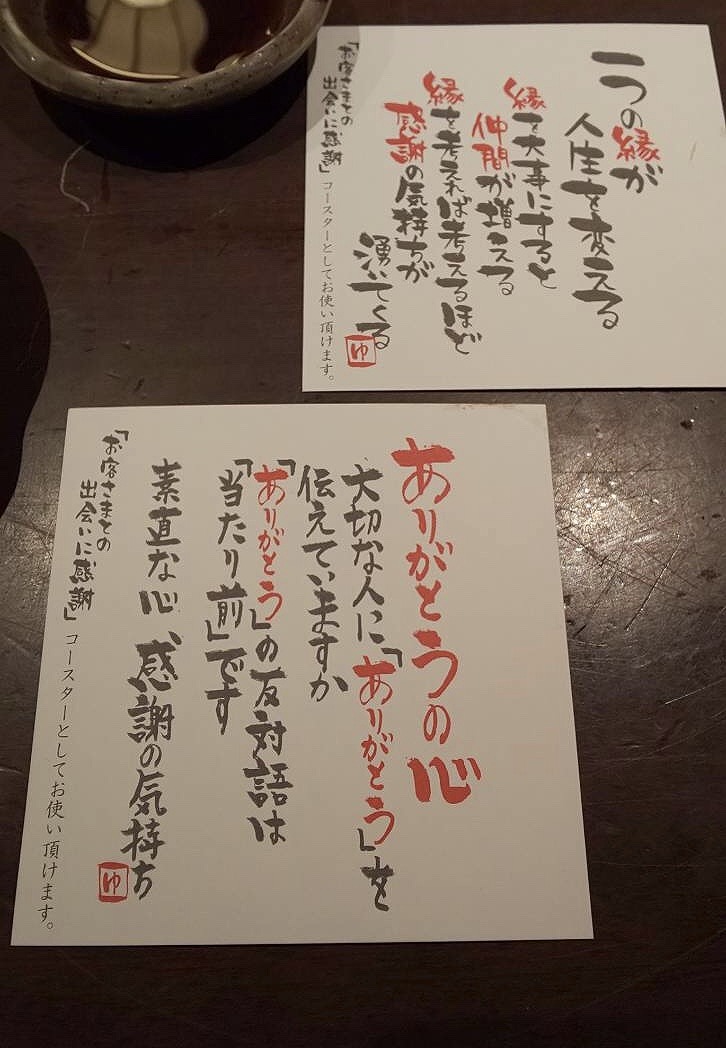 一つの縁が
人生を変える
縁を大事にすると
仲間が増える
縁を考えれば考えるほど
感謝の気持ちが
湧いてくる
ゆ
「お客さまとの
出会いに感謝」コースターとしてお使い頂けます。
ありがとうの心
大切な人に「ありがとう」を
伝えていますか
「ありがとう」の反対語は
「当たり前」です
素直な心、感謝の気持ち
ゆ
「お客さまとの
出会いに感謝」コースターとしてお使い頂けます。